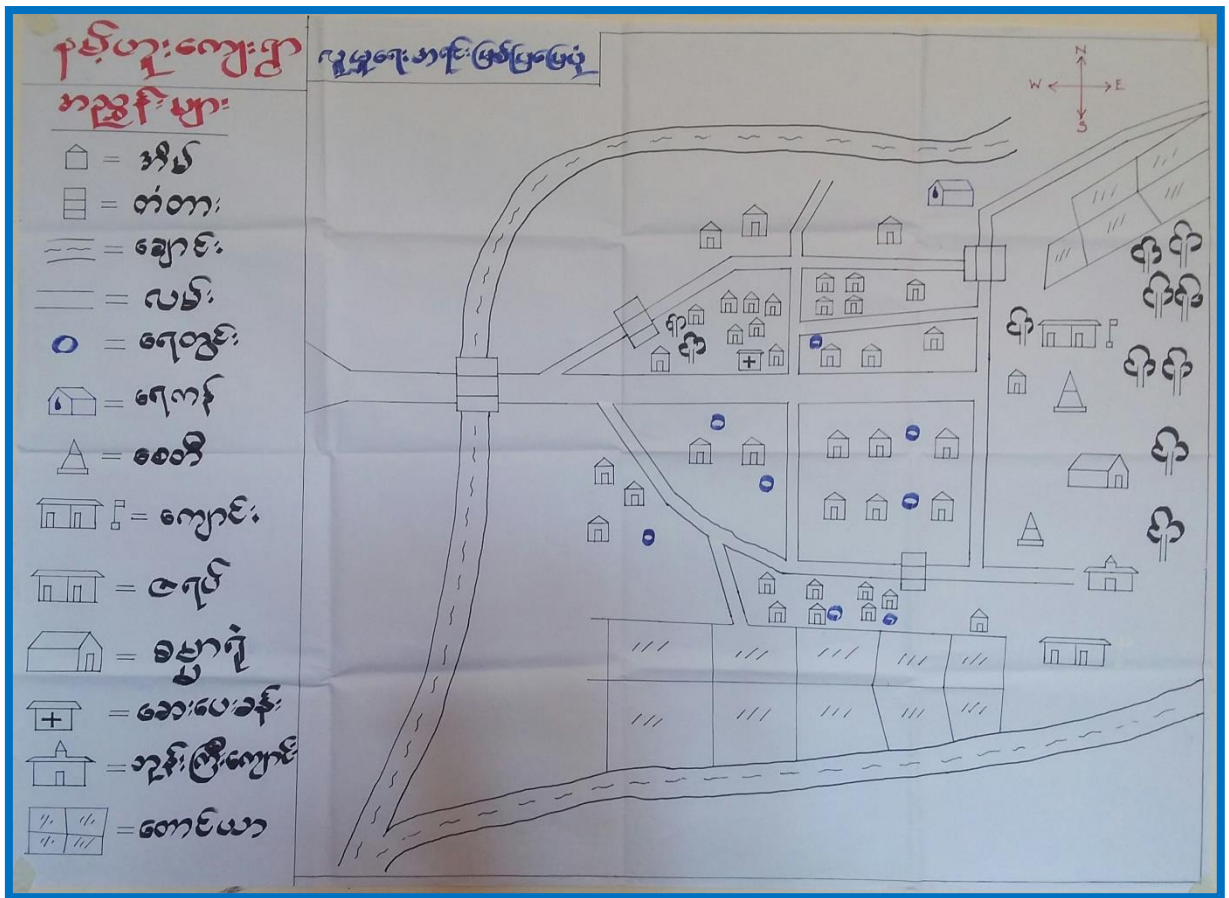 နမ့်ဟူးကျေးရွာ
လူမှုရေးအရင်းမြစ်ပြမြေပုံ
အညွှန်းများ
= အိမ်
= တံတား
= ချောင်း
= လမ်း
= ရေတွင်း
= ရေကန်
= စေတီ
= ကျောင်း
= ဇရပ်
= ဓမ္မာရုံ
= ဆေးပေးခန်း
= ဘုန်းကြီးကျောင်း
= တောင်ယာ
N
W E
S